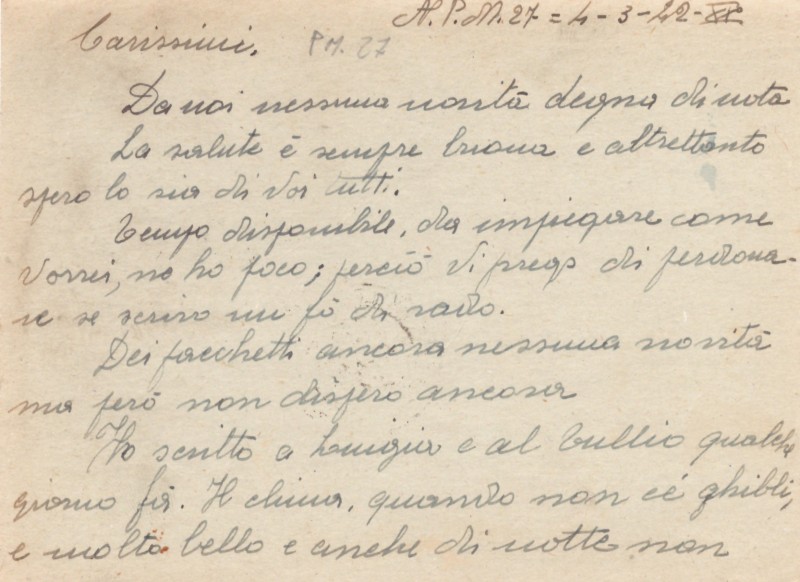 A.P.M. 27 = 4-3-42-XX
Carissimi,
P M. 27
Da noi nessuna novità degna di nota
La salute è sempre buona e altrettanto
spero lo sia di voi tutti.
Tempo disponibile, da impiegare come
vorrei, ne ho poco; perciò vi prego di perdona-
re se scrivo un pò di rado.
Dei pacchetti ancora nessuna novità
ma però non dispero ancora
Ho scritto a Luigia e al Tullio qualche
giorno fà. Il clima, quando non c'é ghibli,
e molto bello e anche di notte non